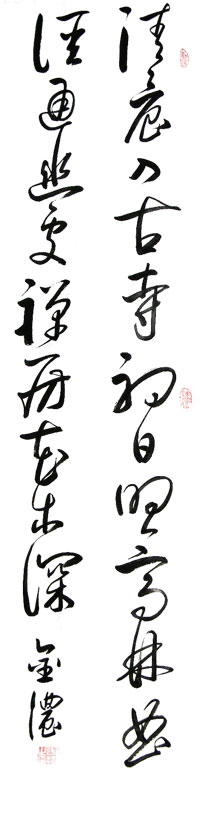 清晨入古寺初日照高林曲
徑通幽處禪房花木深 金濃